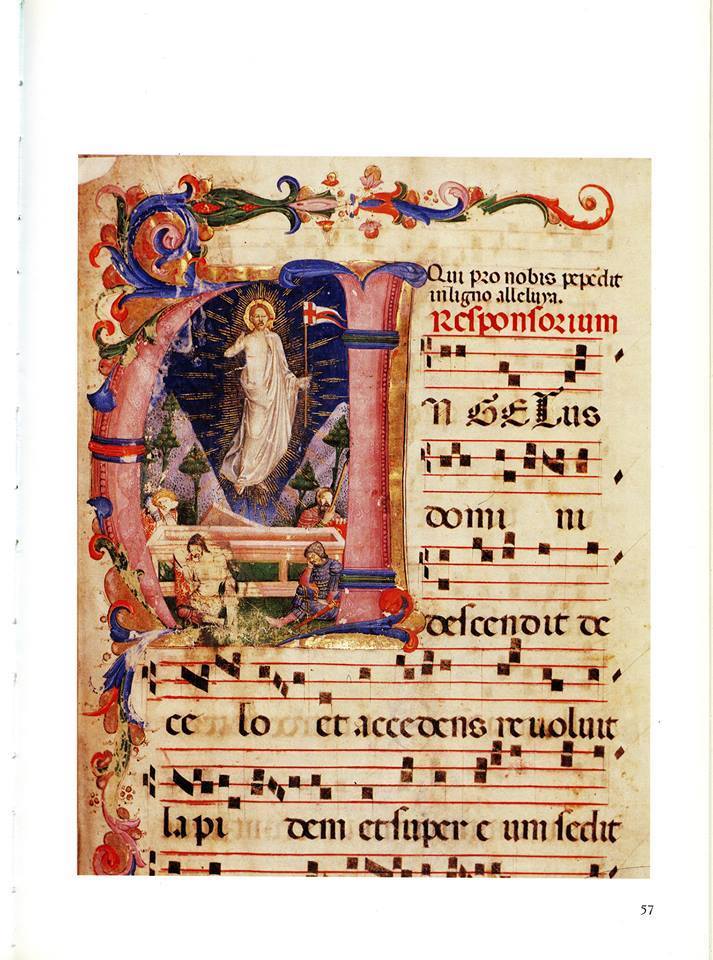 Qui pro nobis pependit
in ligno alleluya.
Responsorium
NGELus
domi ni
descendit de
ce lo et accedens reuoluit
lapi dem et super e um sedit
57